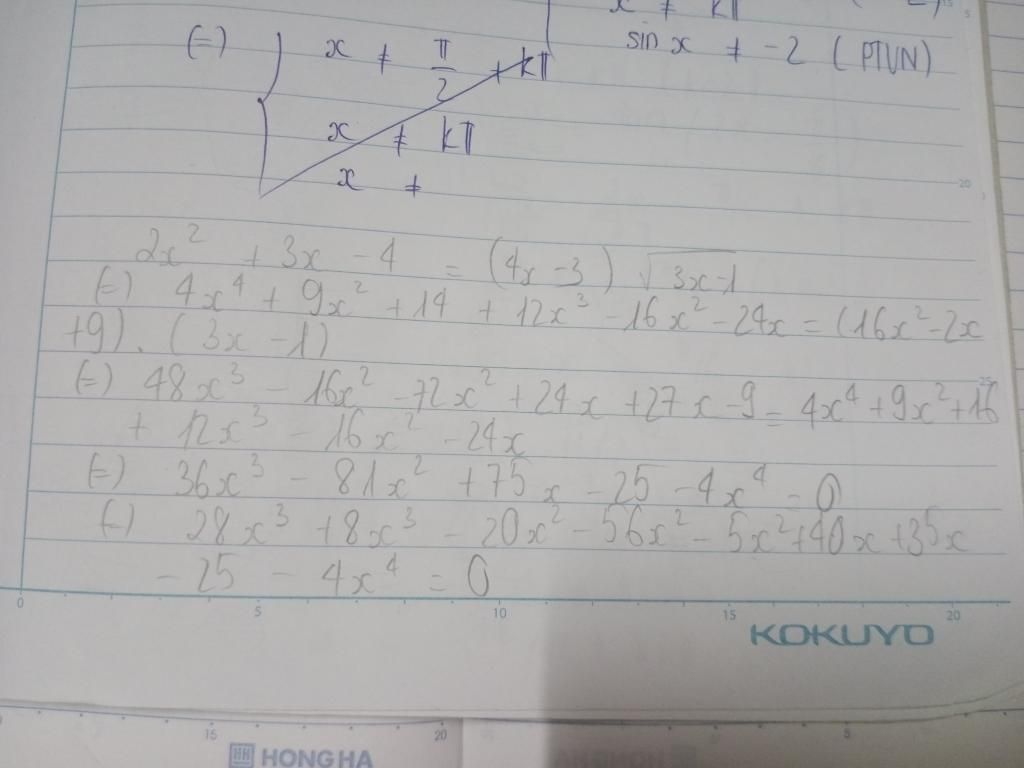 x ≠ kπ
sin x ≠ -2 (PTVN)
(=) { x ≠ π/2 + kπ
x ≠ kπ
x ≠
2x² + 3x - 4 = (4x - 3) √(3x-1)
(=) 4x⁴ + 9x² + 14 + 12x³ - 16x² - 24x = (16x² - 2x
+9). (3x - 1)
(=) 48x³ - 16x² - 72x² + 24x + 27x - 9 = 4x⁴ + 9x² + 16
+ 12x³ - 16x² - 24x
(=) 36x³ - 81x² + 75x - 25 - 4x⁴ = 0
(=) 28x³ + 8x³ - 20x² - 56x² - 5x² + 40x + 35x
- 25 - 4x⁴ = 0
0 5 10 15 20
KOKUYO
15 20 5
HH HONG HA